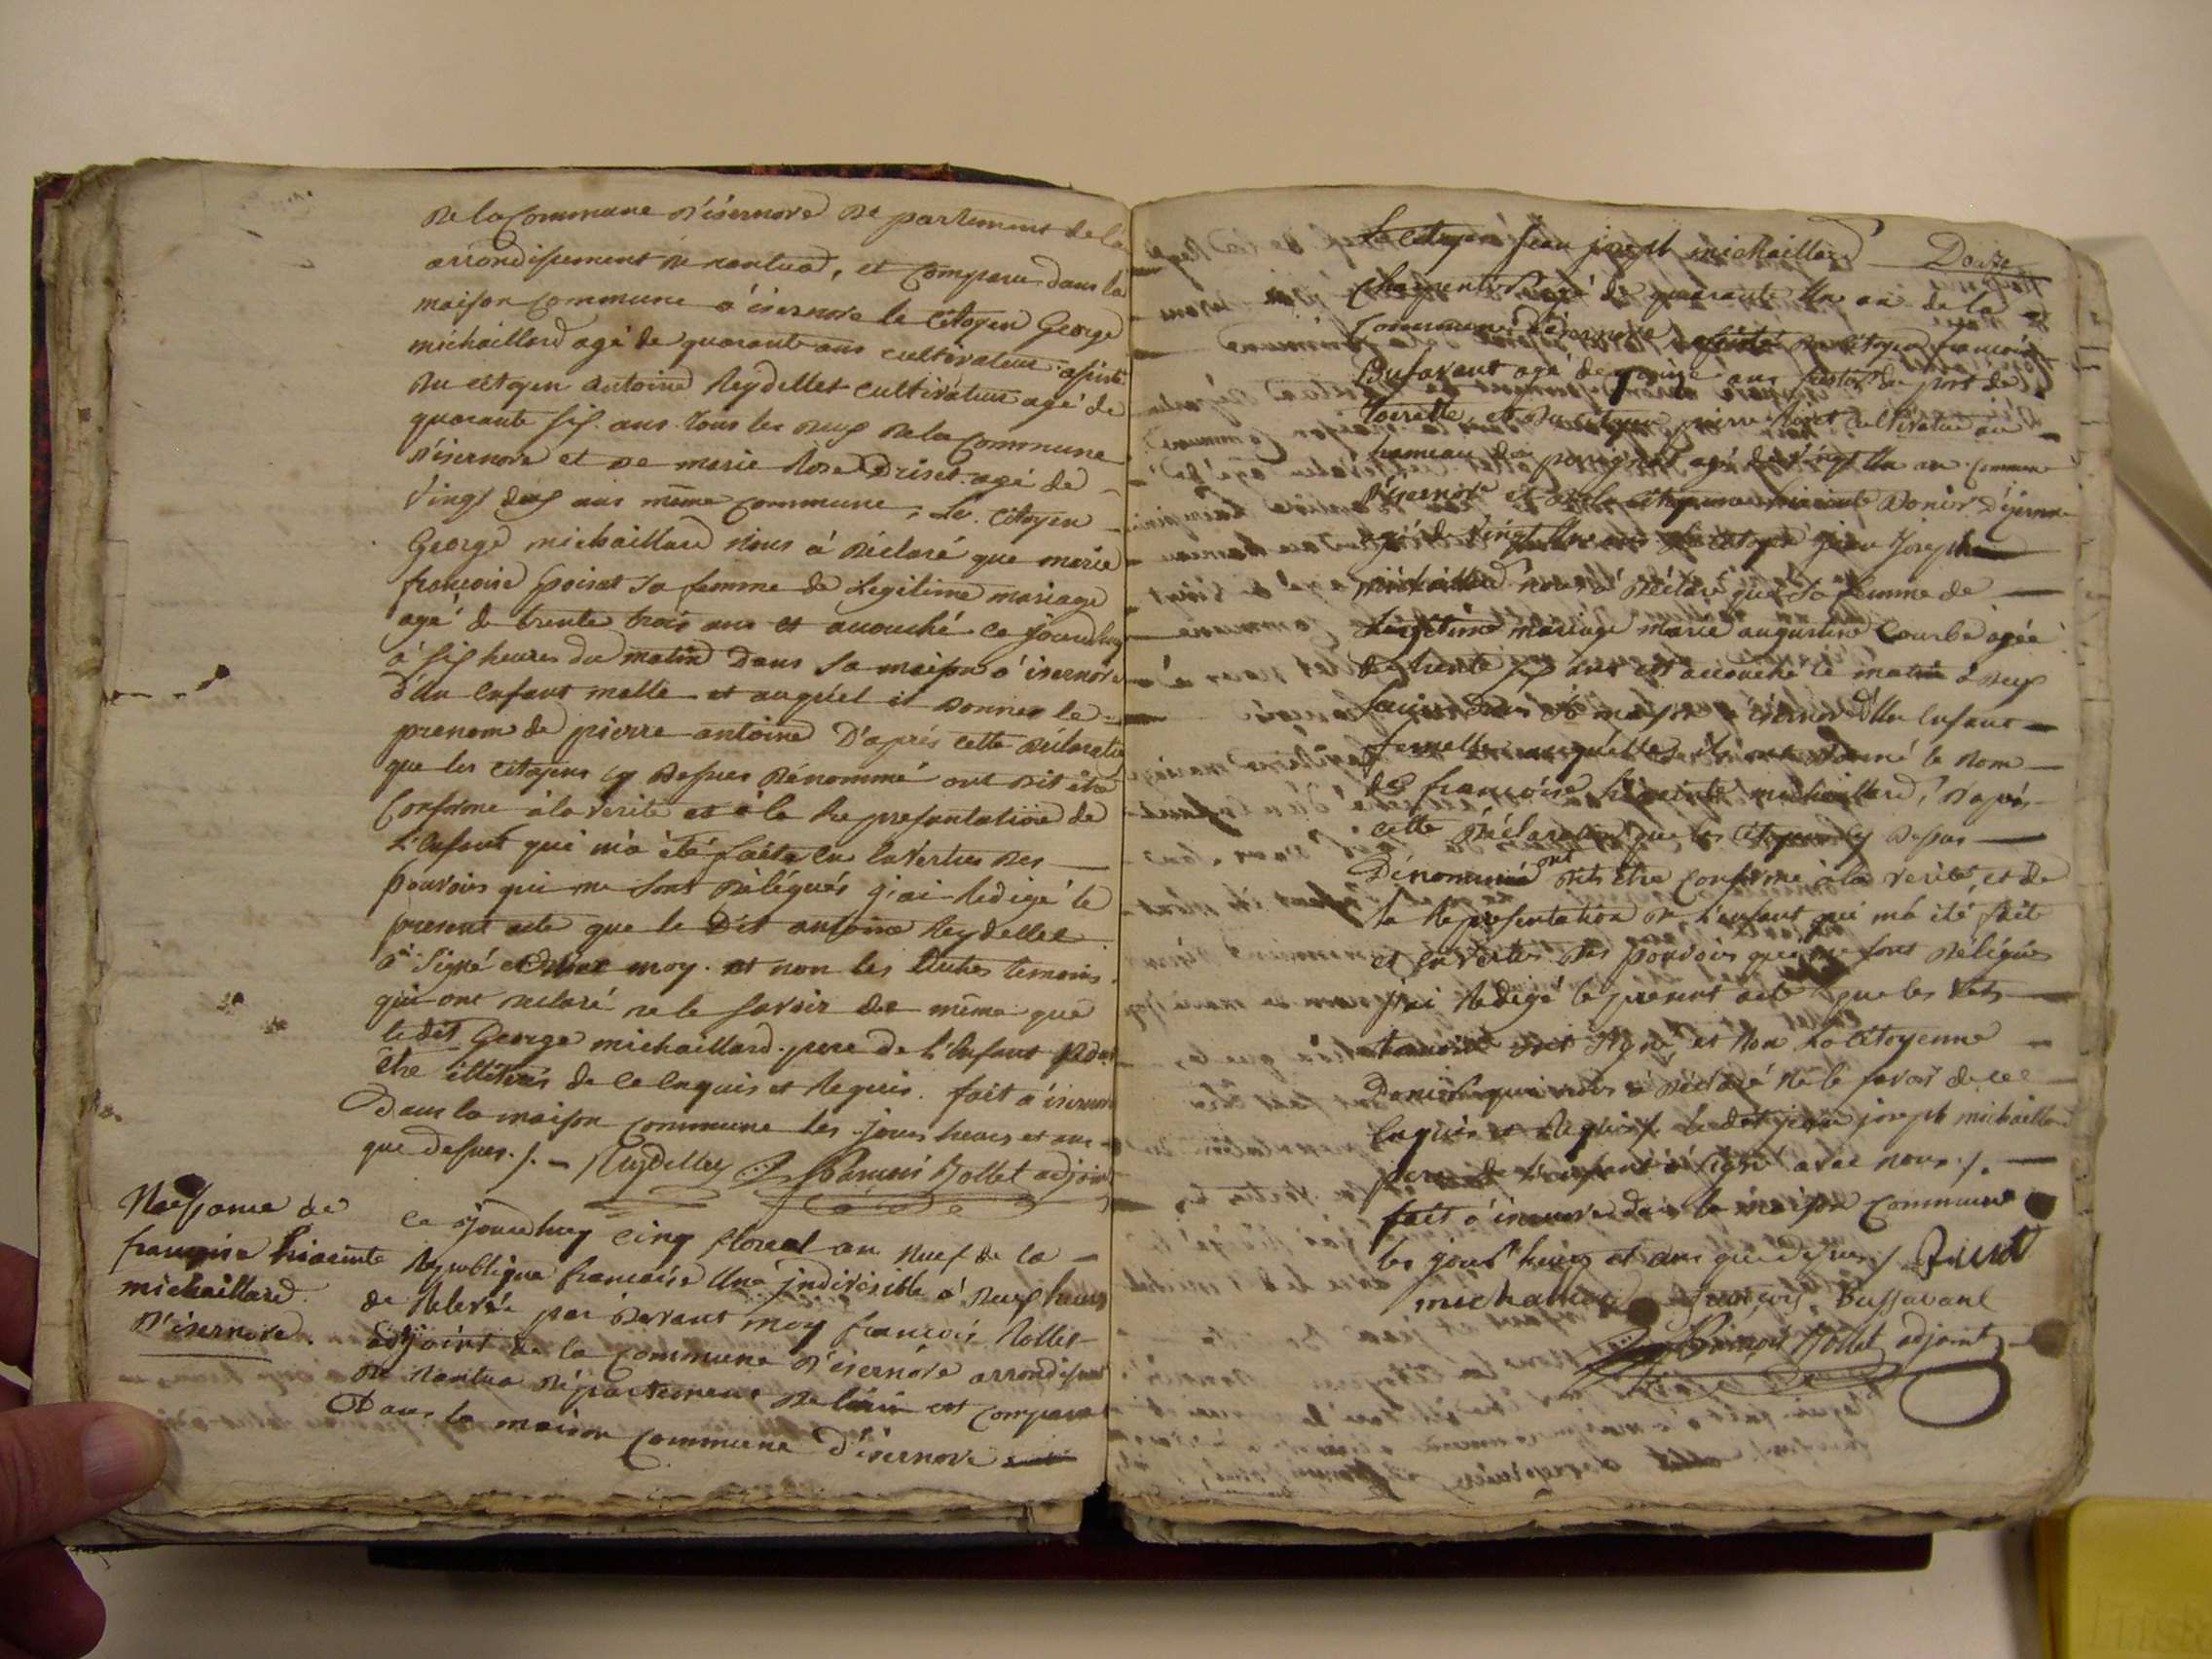 De la Commune d'isernore De partement de la
arrondissement de nantua, et Comparu dans la
maison Commune a isernore le Citoyen George
michaillard agé de quarante ans cultivateur assisté
du Citoyen antoine Reydellet cultivateur agé de
quarante six ans tous les deux de la Commune
d'isernore et de marie Rose agé de
vingt deux ans même Commune, Le Citoyen
George michaillard nous à déclaré que marie
francoise poisat sa femme de Legitime mariage
agé de trente trois ans et acouché ce jourdhuy
à six heures du matin Dans sa maison a isernore
d'un Enfant malle et auquel il donner le
prenom de pierre antoine D'aprés cette déclaration
que les citoyens cy dessus dénommé ont dit être
Conforme à la verité et a la Representatione de
L'enfant qui m'à été faite en la Vertus des
pouvoirs qui me sont délégués j'ai Redigé le
present acte que le Dit antoine Reydellet
à Signé et moy et non les autres temoins
qui ont declaré ne le savoir de même que
le dit George michaillard pere de l'enfant pour
être illiterés de ce Enquis et Requis. fait à isernore
Dans la maison Commune les jours heures et an
que dessus ./. Reydellet francois Rollet adjoint
Naissance de
francoise hiacinte
michaillard
d'isernore.
Ce jourdhuy cinq floreal an Neuf de la
Republique francaise Une indivisible à deux heures
de Relevée par devant moy francois Rollet
adjoint de la Commune d'isernore arrondissement
de Nantua département de l'ain est comparu
Dans la maison Commune d'isernore
Douze
Le Citoyen Jean joseph michaillard
Charpentier agé de quarante Un an de la
Commune d'isernore assisté du Citoyen francois
Bussavant agé de ans du port de
Toirette, et du Citoyen pierre Cultivateur au
hameau de perignat agé de vingt Un an Commune
d'isernore et de la Citoyenne hiacinte Donior d'isernore
agé de vingt Un ans Le Citoyen jean Joseph
michaillard nous à déclaré que sa femme de
Legitime mariage marie augustine Courbe agée
de trente six ans est acouché le matin à deux
dans sa maison à isernore d'Un Enfant
femelle auquelle ils ont donné le Nom
de francoise hiacinte michaillard, d'aprés
cette déclaration que les Citoyens cy dessus
Dénommé ont dits être Conforme à la verité, et de
la Representation de l'enfant qui m'à été faite
et en vertus des pouvoirs qui me sont délégués
j'ai Redigé le present acte que les dits
temoins ont signé et Non La Citoyenne
Donior qui nous à déclaré Ne le savoir de ce
Enquis et Requis / Ledit jean joseph michaillard
pere de l'enfant à signé avec nous ./.
fait à isernore dans la maison Commune
les jours heures et ans que dessus /
michaillard francois Bussavant
francois Rollet adjoint